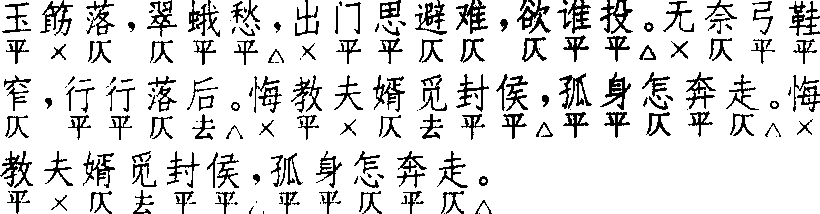 玉筯落，翠蛾愁，出门思避难，欲谁投。无奈弓鞋
平×仄 仄平平△×平平仄仄 仄平平△×仄平平
窄，行行落后。悔教夫婿觅封侯，孤身怎奔走。悔
仄 平平仄去△×平×仄去平平△平平仄平仄△×
教夫婿觅封侯，孤身怎奔走。
平×仄去平平△平平仄平仄△